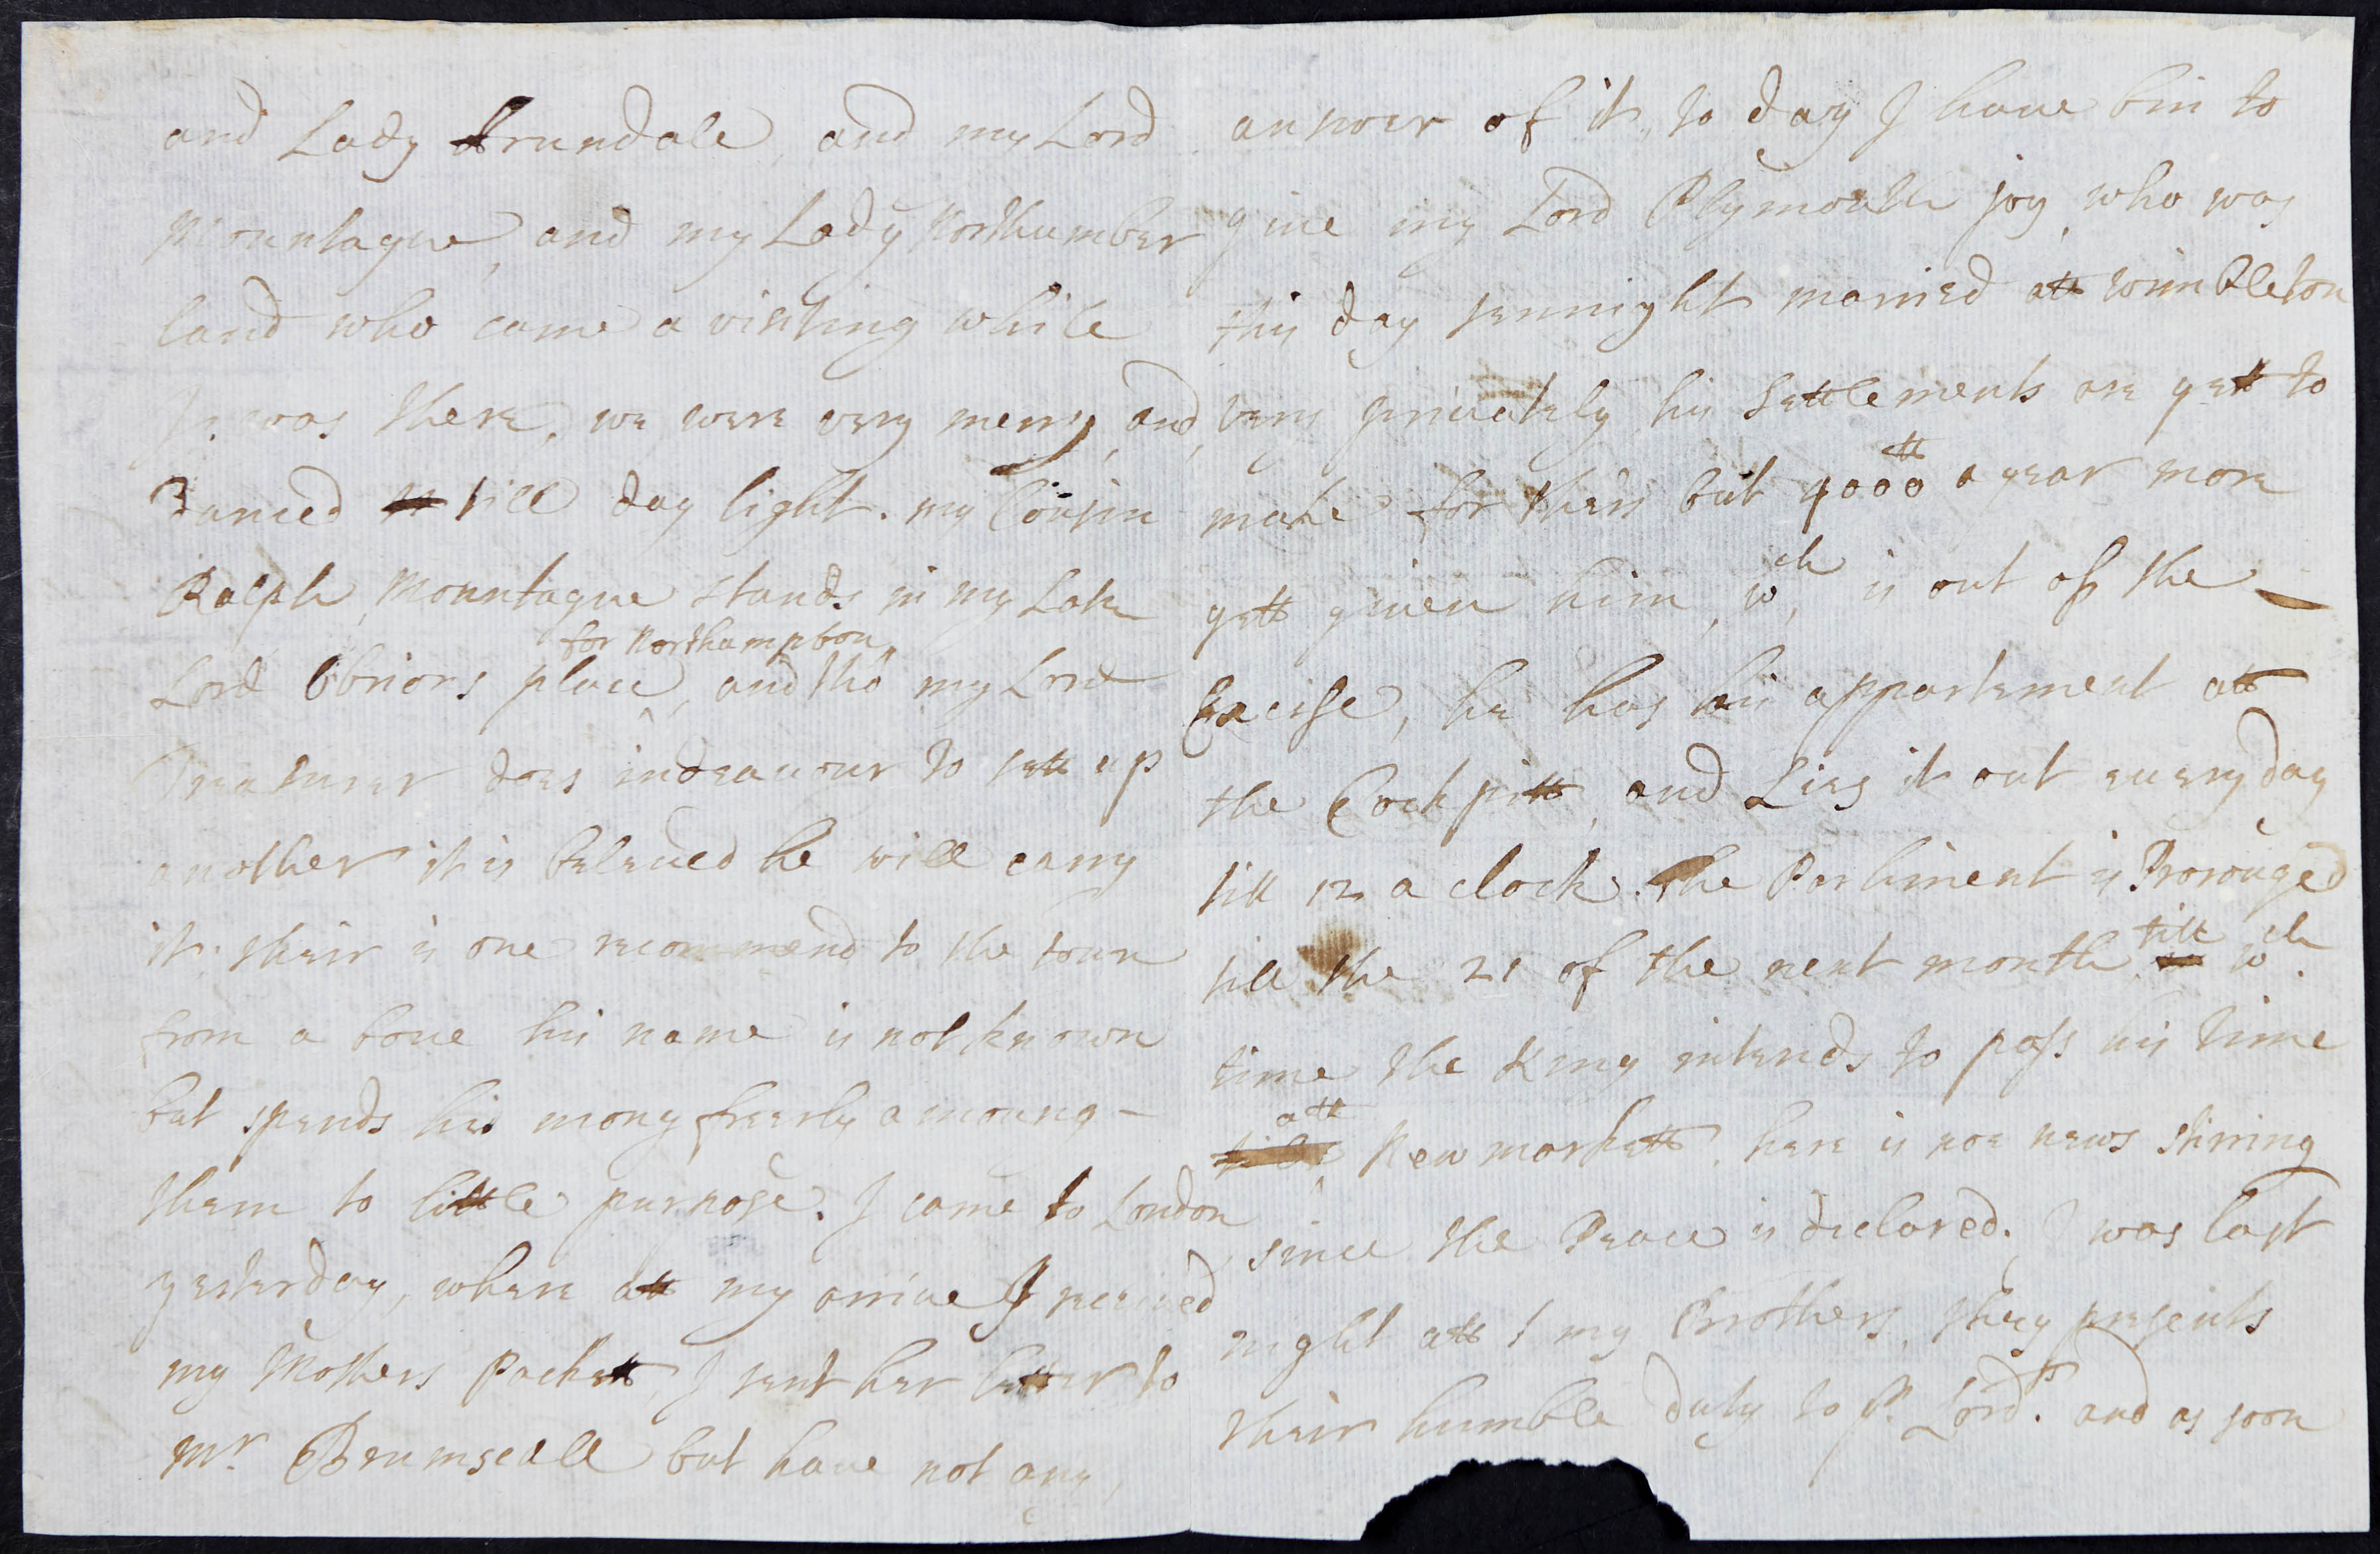 and Lady Arundale, and my Lord
Mountague, and my Lady Northumber
land who came a visiting while
I was there, we were very merry, and,
danced till day light. my Cousin
Ralph Mountague stands in my Late
for Northampton
Lord Obriors place, and tho my Lord
Treasurer does indeavour to sett up
another it is beleaved he will carry
it. their is one recommend to the town
from a bove his name is not known
but spends his mony freely amoung -
them to little purpose. I came to London
yesterday, where att my arrive I received
my Mothers Packett, I sent her letter to
Mr. Brumsdall but have not any,
answer of it, to day I have bin to
give my Lord Plymouth joy, who was
this day sennight married att wimbleton
very privately, his settlements are yett to
make for theris but 4000tt a year more
yett given him, wch, is out off the
Excise, he has his appartement att
the Cockpitt, and Lies it out every day
till 12 a clock. The Parliment is Prorouged
till the 21 of the next month, till wch.
time the King intends to pass his time
att
New markett. here is noe news stirring
since the Peace is declared. I was last
night att my Brothers, they presents
their humble duty to yr. Lordsp. and as soon